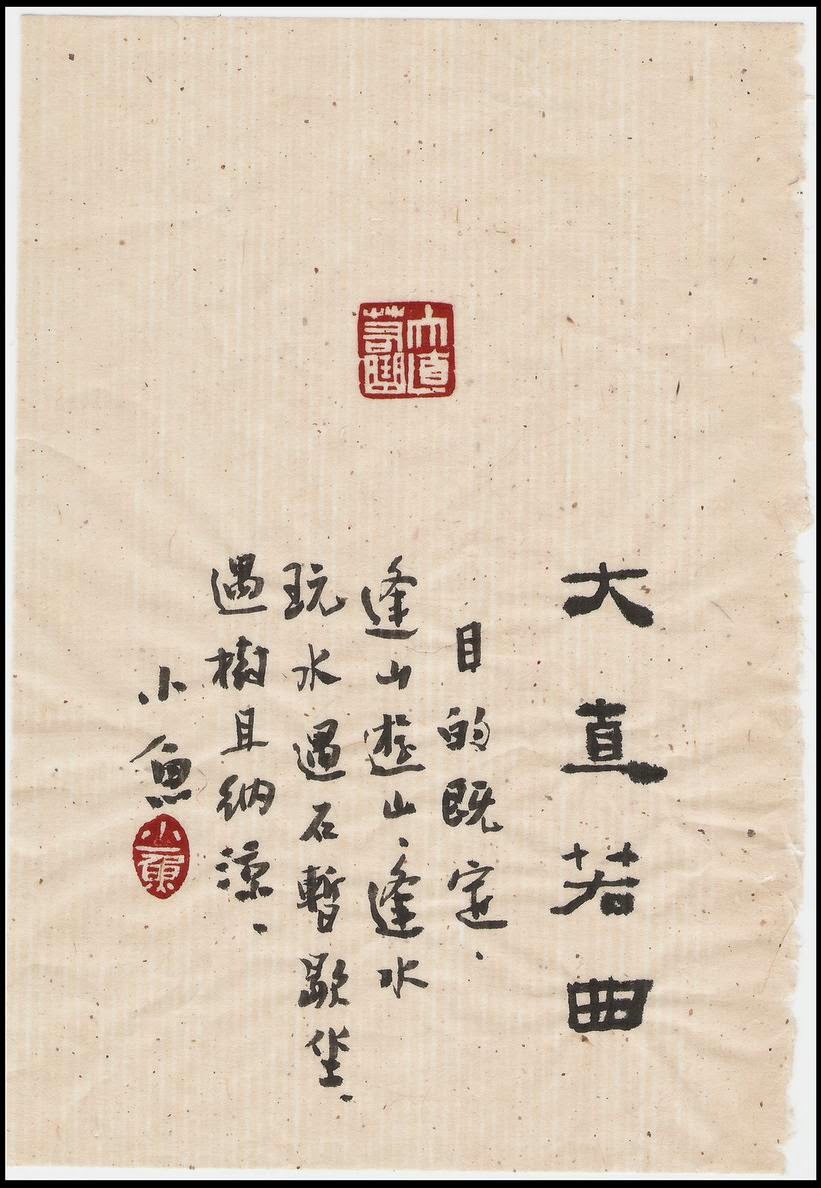 大直若曲
大直若曲
目的既定、
逢山遊山、逢水
玩水遇石暫歇坐、
遇樹且納涼、
小魚
小魚